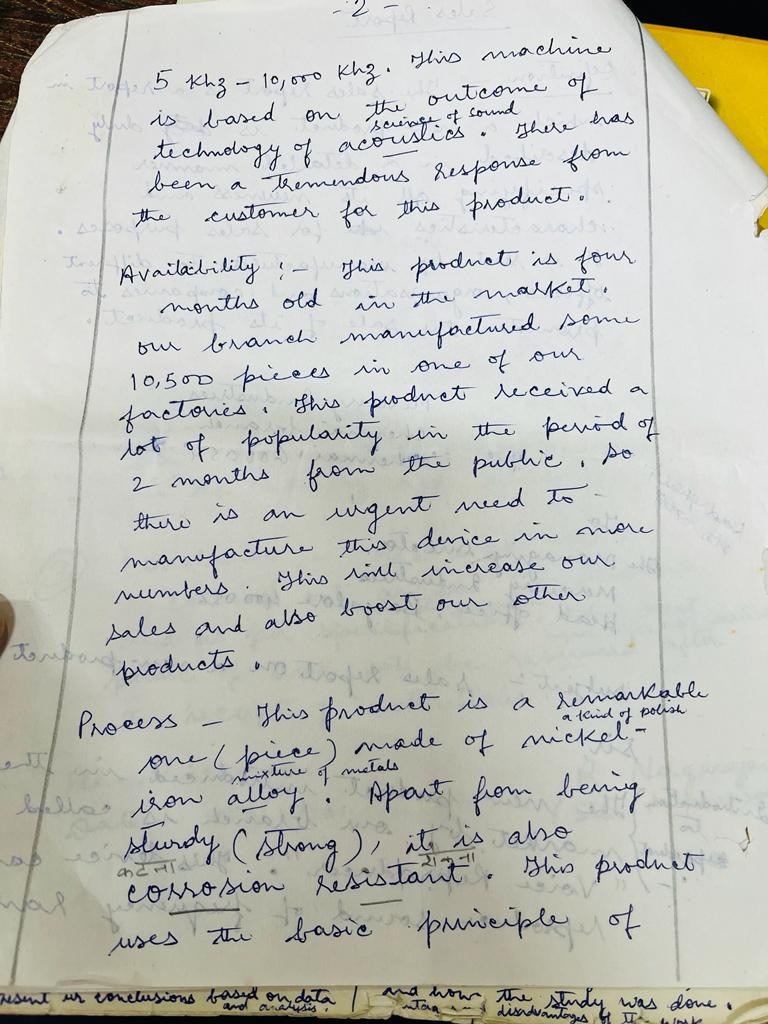 - 2 -
5 Khz – 10,000 Khz. This machine
is based on the outcome of
science of sound
technology of acoustics. There has
been a tremendous response from
the customer for this product.
Availability :- This product is four
months old in the market.
our branch manufactured some
10,500 pieces in one of our
factories. This product received a
lot of popularity in the period of
2 months from the public. So
there is an urgent need to
manufacture this device in more
numbers. This will increase our
sales and also boost our other
products.
Process – This product is a remarkable
a kind of polish
one (piece) made of nickel-
mixture of metals
iron alloy. Apart from being
sturdy (strong), it is also
corrosion resistant. This product
uses the basic principle of
conclusions based on data / and how the study was done.
and analysis. disadvantages of the work